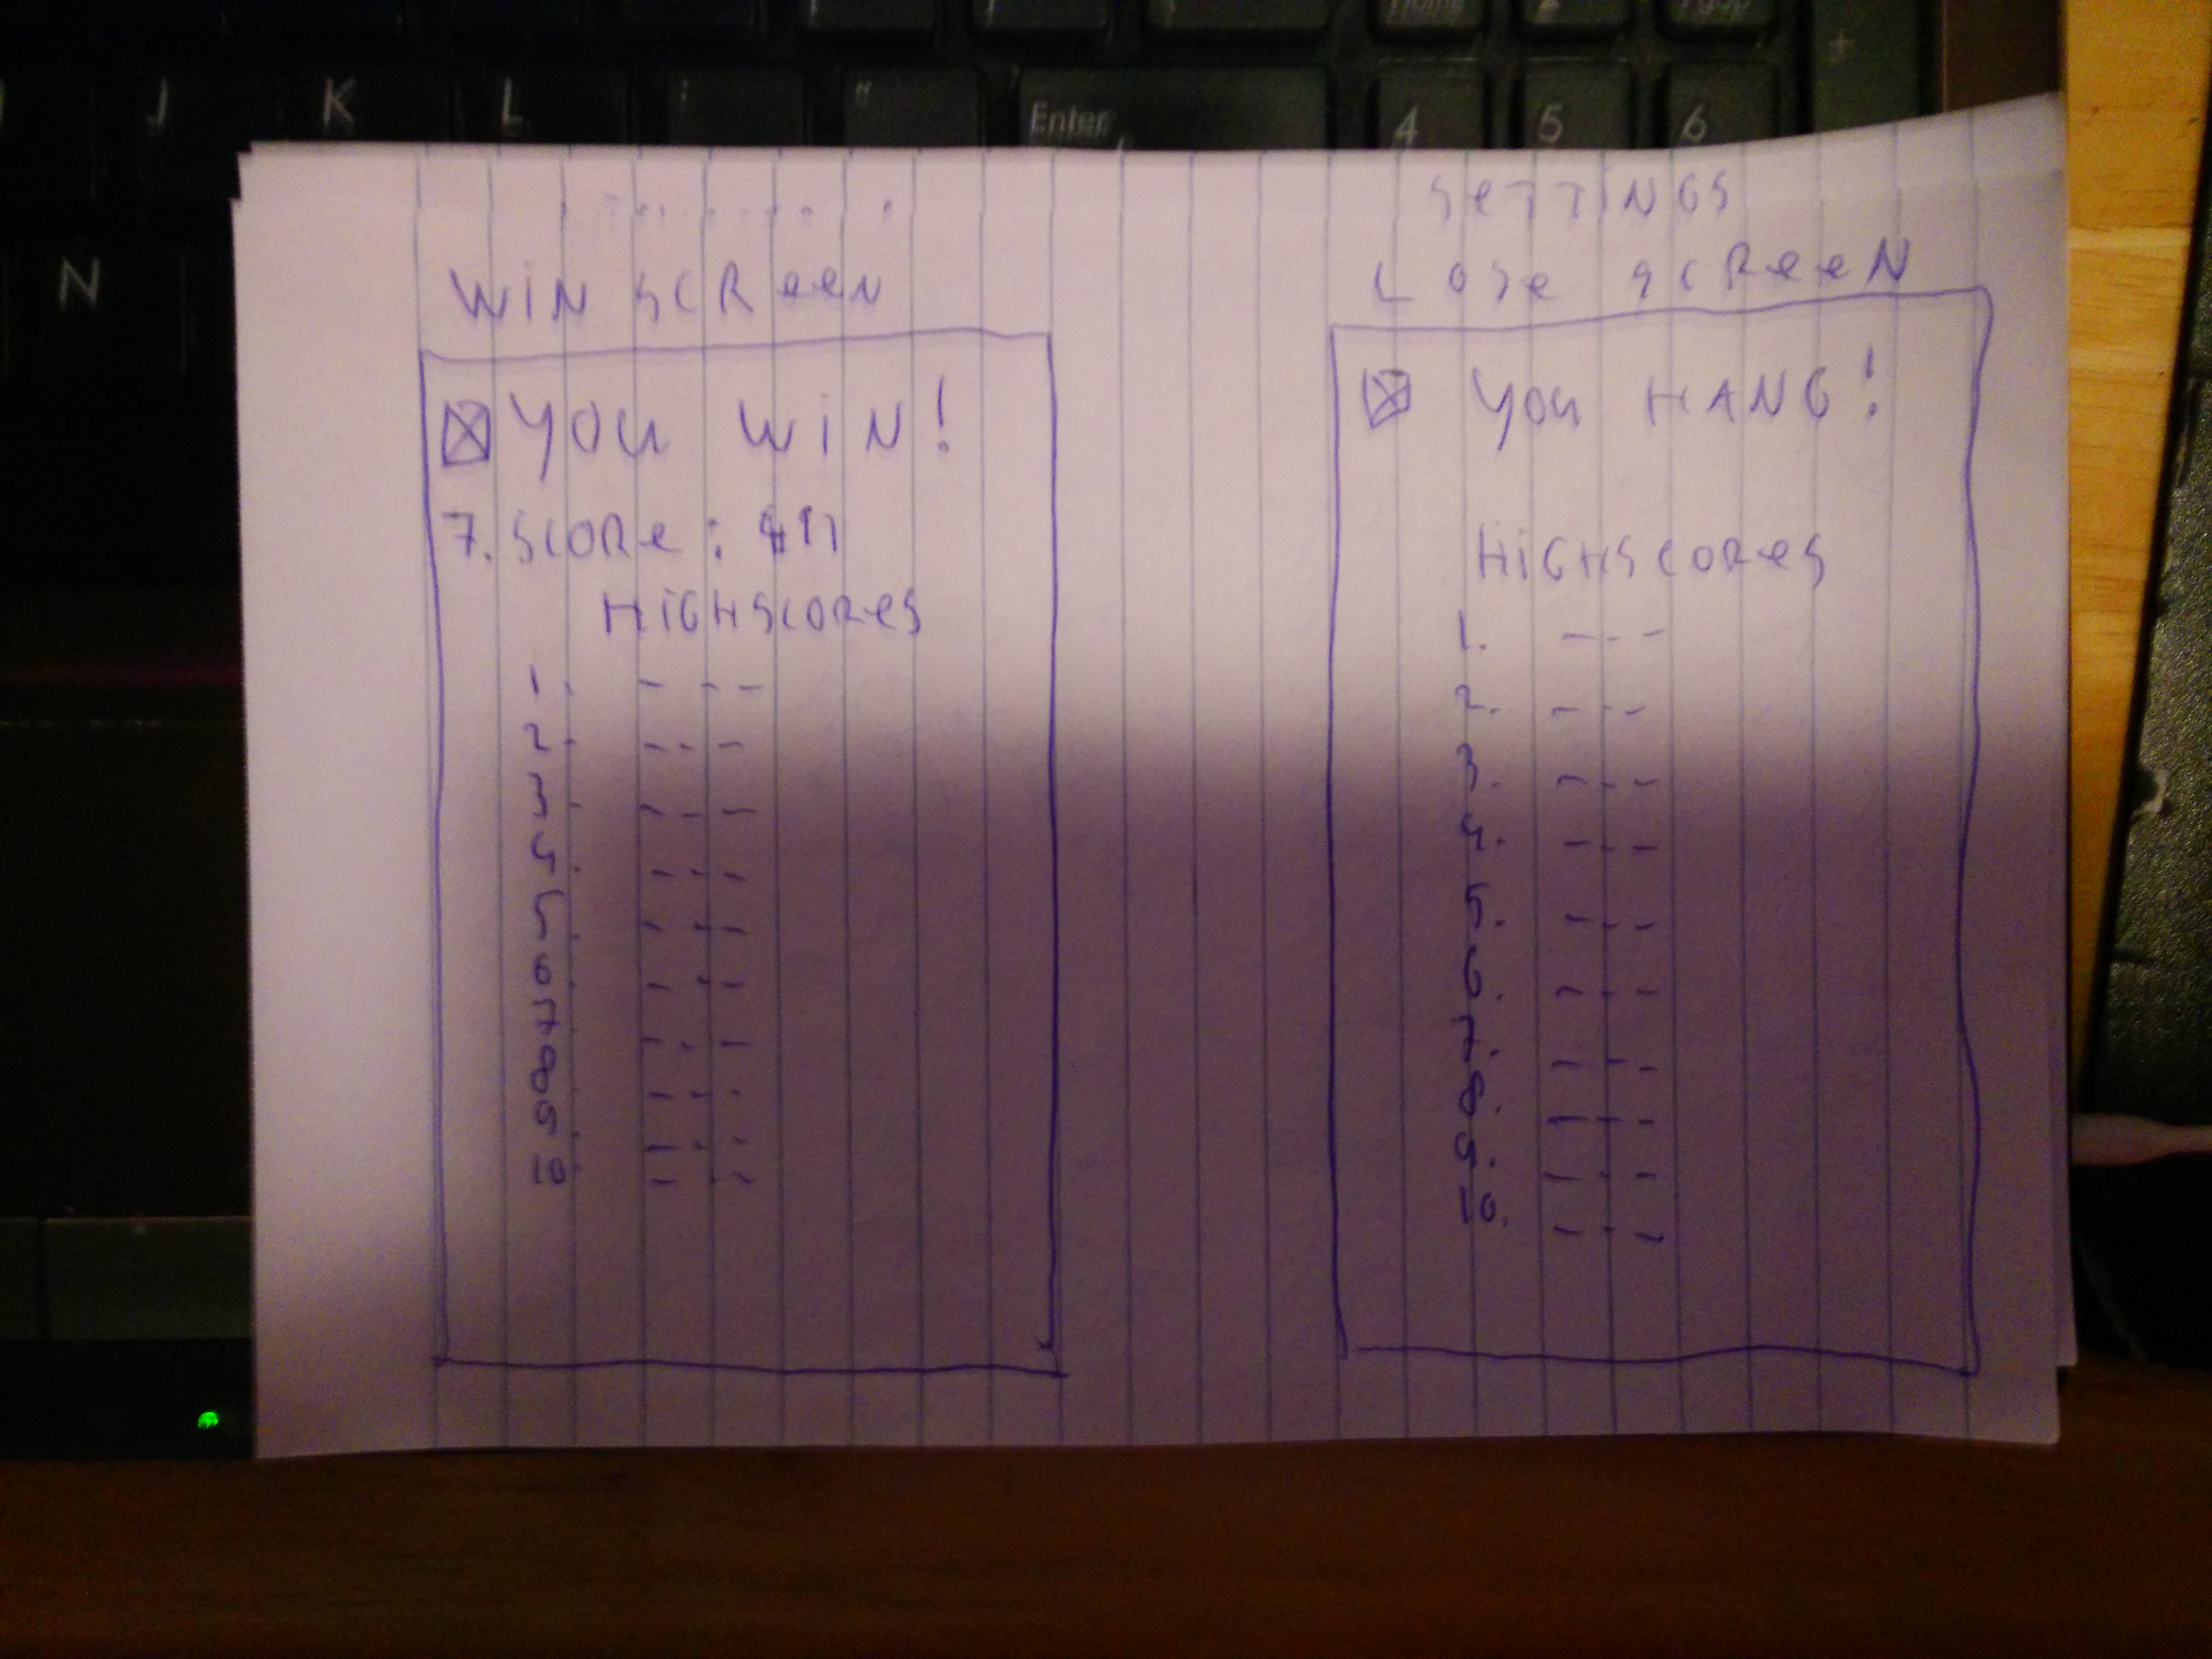 J K L : " Enter 4 5 6
N
WIN SCREEN
☒ YOU WIN!
7. SCORE:
HIGHSCORES
1. - - -
2. - - -
3. - - -
4. - - -
5. - - -
6. - - -
7. - - -
8. - - -
9. - - -
10. - - -
SETTINGS
LOSE SCREEN
☒ YOU HANG!
HIGHSCORES
1. - - -
2. - - -
3. - - -
4. - - -
5. - - -
6. - - -
7. - - -
8. - - -
9. - - -
10. - - -